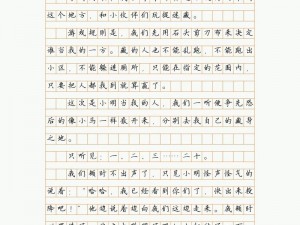 这个地方、和小伙伴们玩捉迷藏。
游戏规则是、我们先用石头剪刀布来决定
谁当我的一方。藏的人也不能乱跑、不能跑出
小区、不能躲进厕所、只能在指定的范围内、
只要把人都找到就算赢了。
这次是小明当我的人、我们一听便争先恐
后的像小马一样散开来、分别去找自己的藏身
之地。
只听见、一、二、三……二十。
我们顿时不出声了、只见小明怪声怪气的
说着“哈哈、我已经看到你们了、快出来投
降吧！”他边说着边向我们这边走来。我顿时